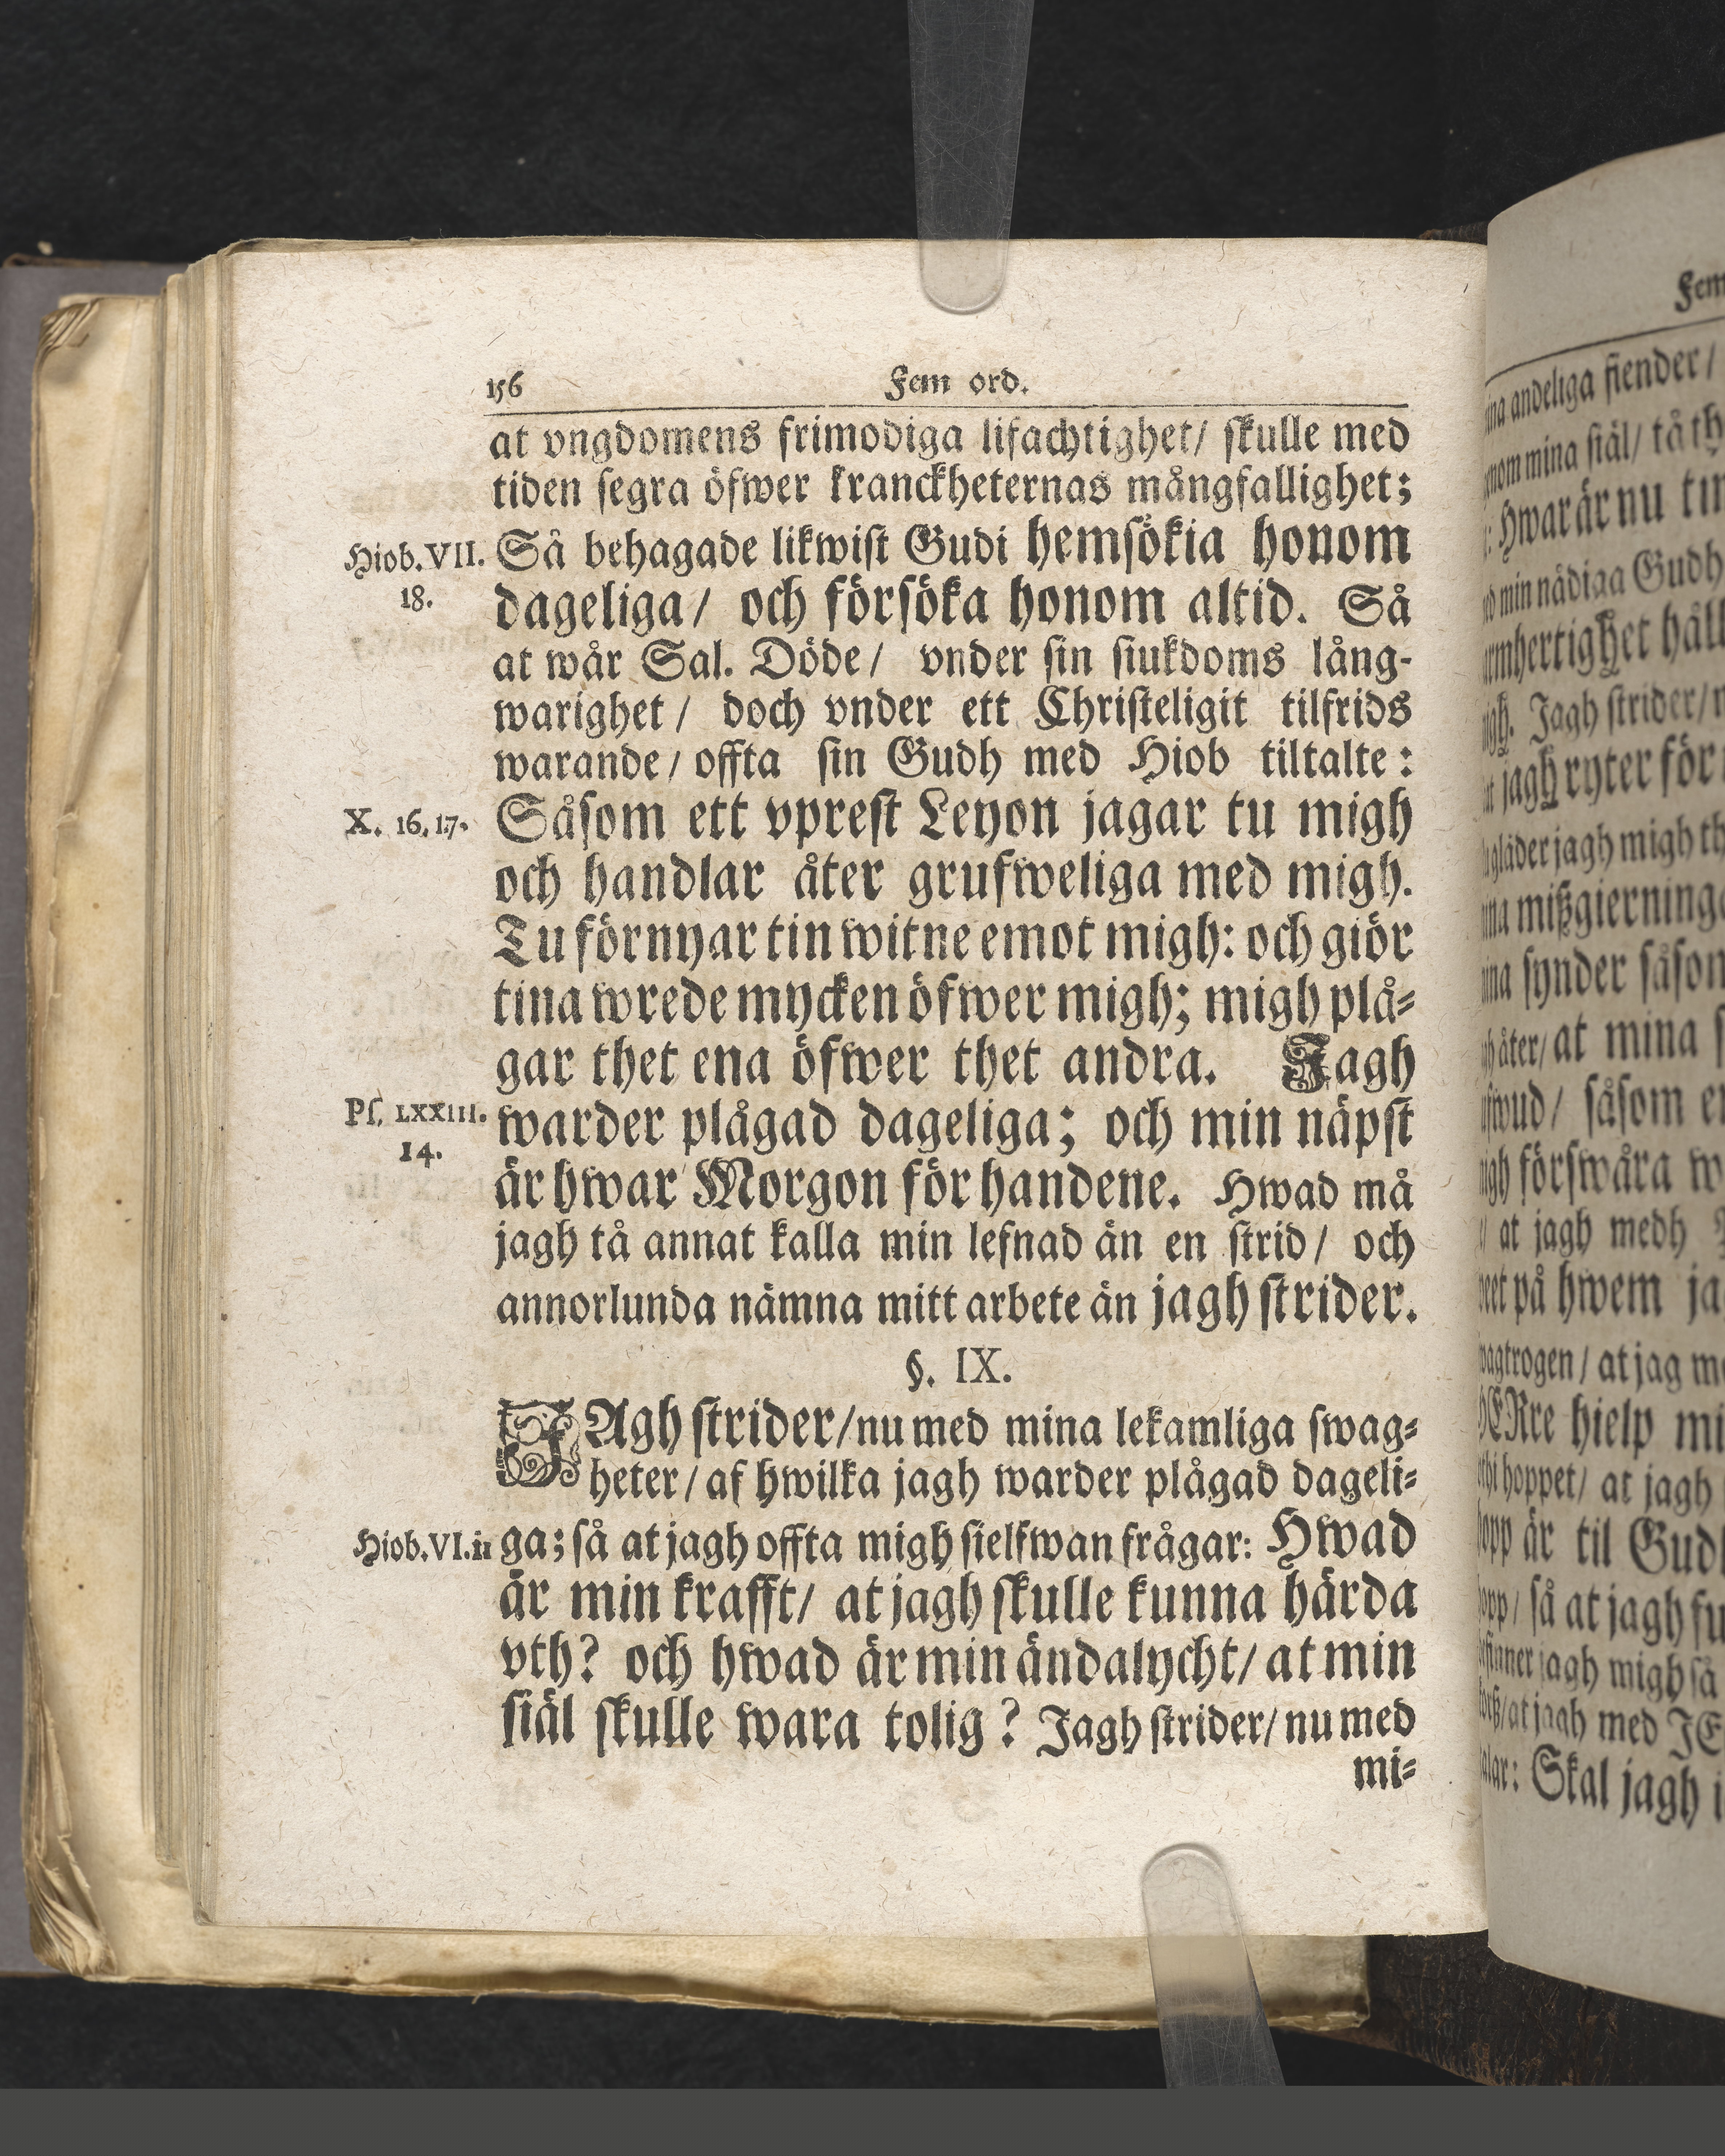 156 Fem ord.
at vngdomens frimodiga lifachtighet/ skulle med
tiden segra öfwer kranckheternas mångfallighet;
Hiob. VII. Så behagade likwist Gudi hemsökia honom
18. dageliga/ och försöka honom altid. Så
at wår Sal. Döde/ vnder sin siukdoms lång-
warighet/ doch vnder ett Christeligit tilfrids
warande/ offta sin Gudh med Hiob tiltalte:
X. 16. 17. Såsom ett vprest Leyon jagar tu migh
och handlar åter grufweliga med migh.
Tu förnyar tin witne emot migh: och giör
tina wrede mycken öfwer migh; migh plå-
gar thet ena öfwer thet andra. Jagh
Ps. LXXIII. warder plågad dageliga; och min näpst
14. är hwar Morgon för handene. Hwad må
jagh tå annat kalla min lefnad än en strid/ och
annorlunda nämna mitt arbete än jagh strider.
§. IX.
JAgh strider/ nu med mina lekamliga swag-
heter/ af hwilka jagh warder plågad dageli-
Hiob. VI. 11 ga; så at jagh offta migh sielfwan frågar: Hwad
är min krafft/ at jagh skulle kunna härda
vth? och hwad är min ändalycht/ at min
siäl skulle wara tolig? Jagh strider/ nu med
mi-
Fem
andeliga fiender/
mina siäl/ tå
Hwar är nu
min nådiga Gudh
Jagh strider/
jagh ryter för
jagh migh
mißgierninga
synder såsom
åter/ at mina
såsom
förswåra
at jagh medh
på hwem
at jag
HERre hielp
hoppet/ at jagh
är til Gudh
så at jagh
jagh migh så
at jagh med
Skal jagh